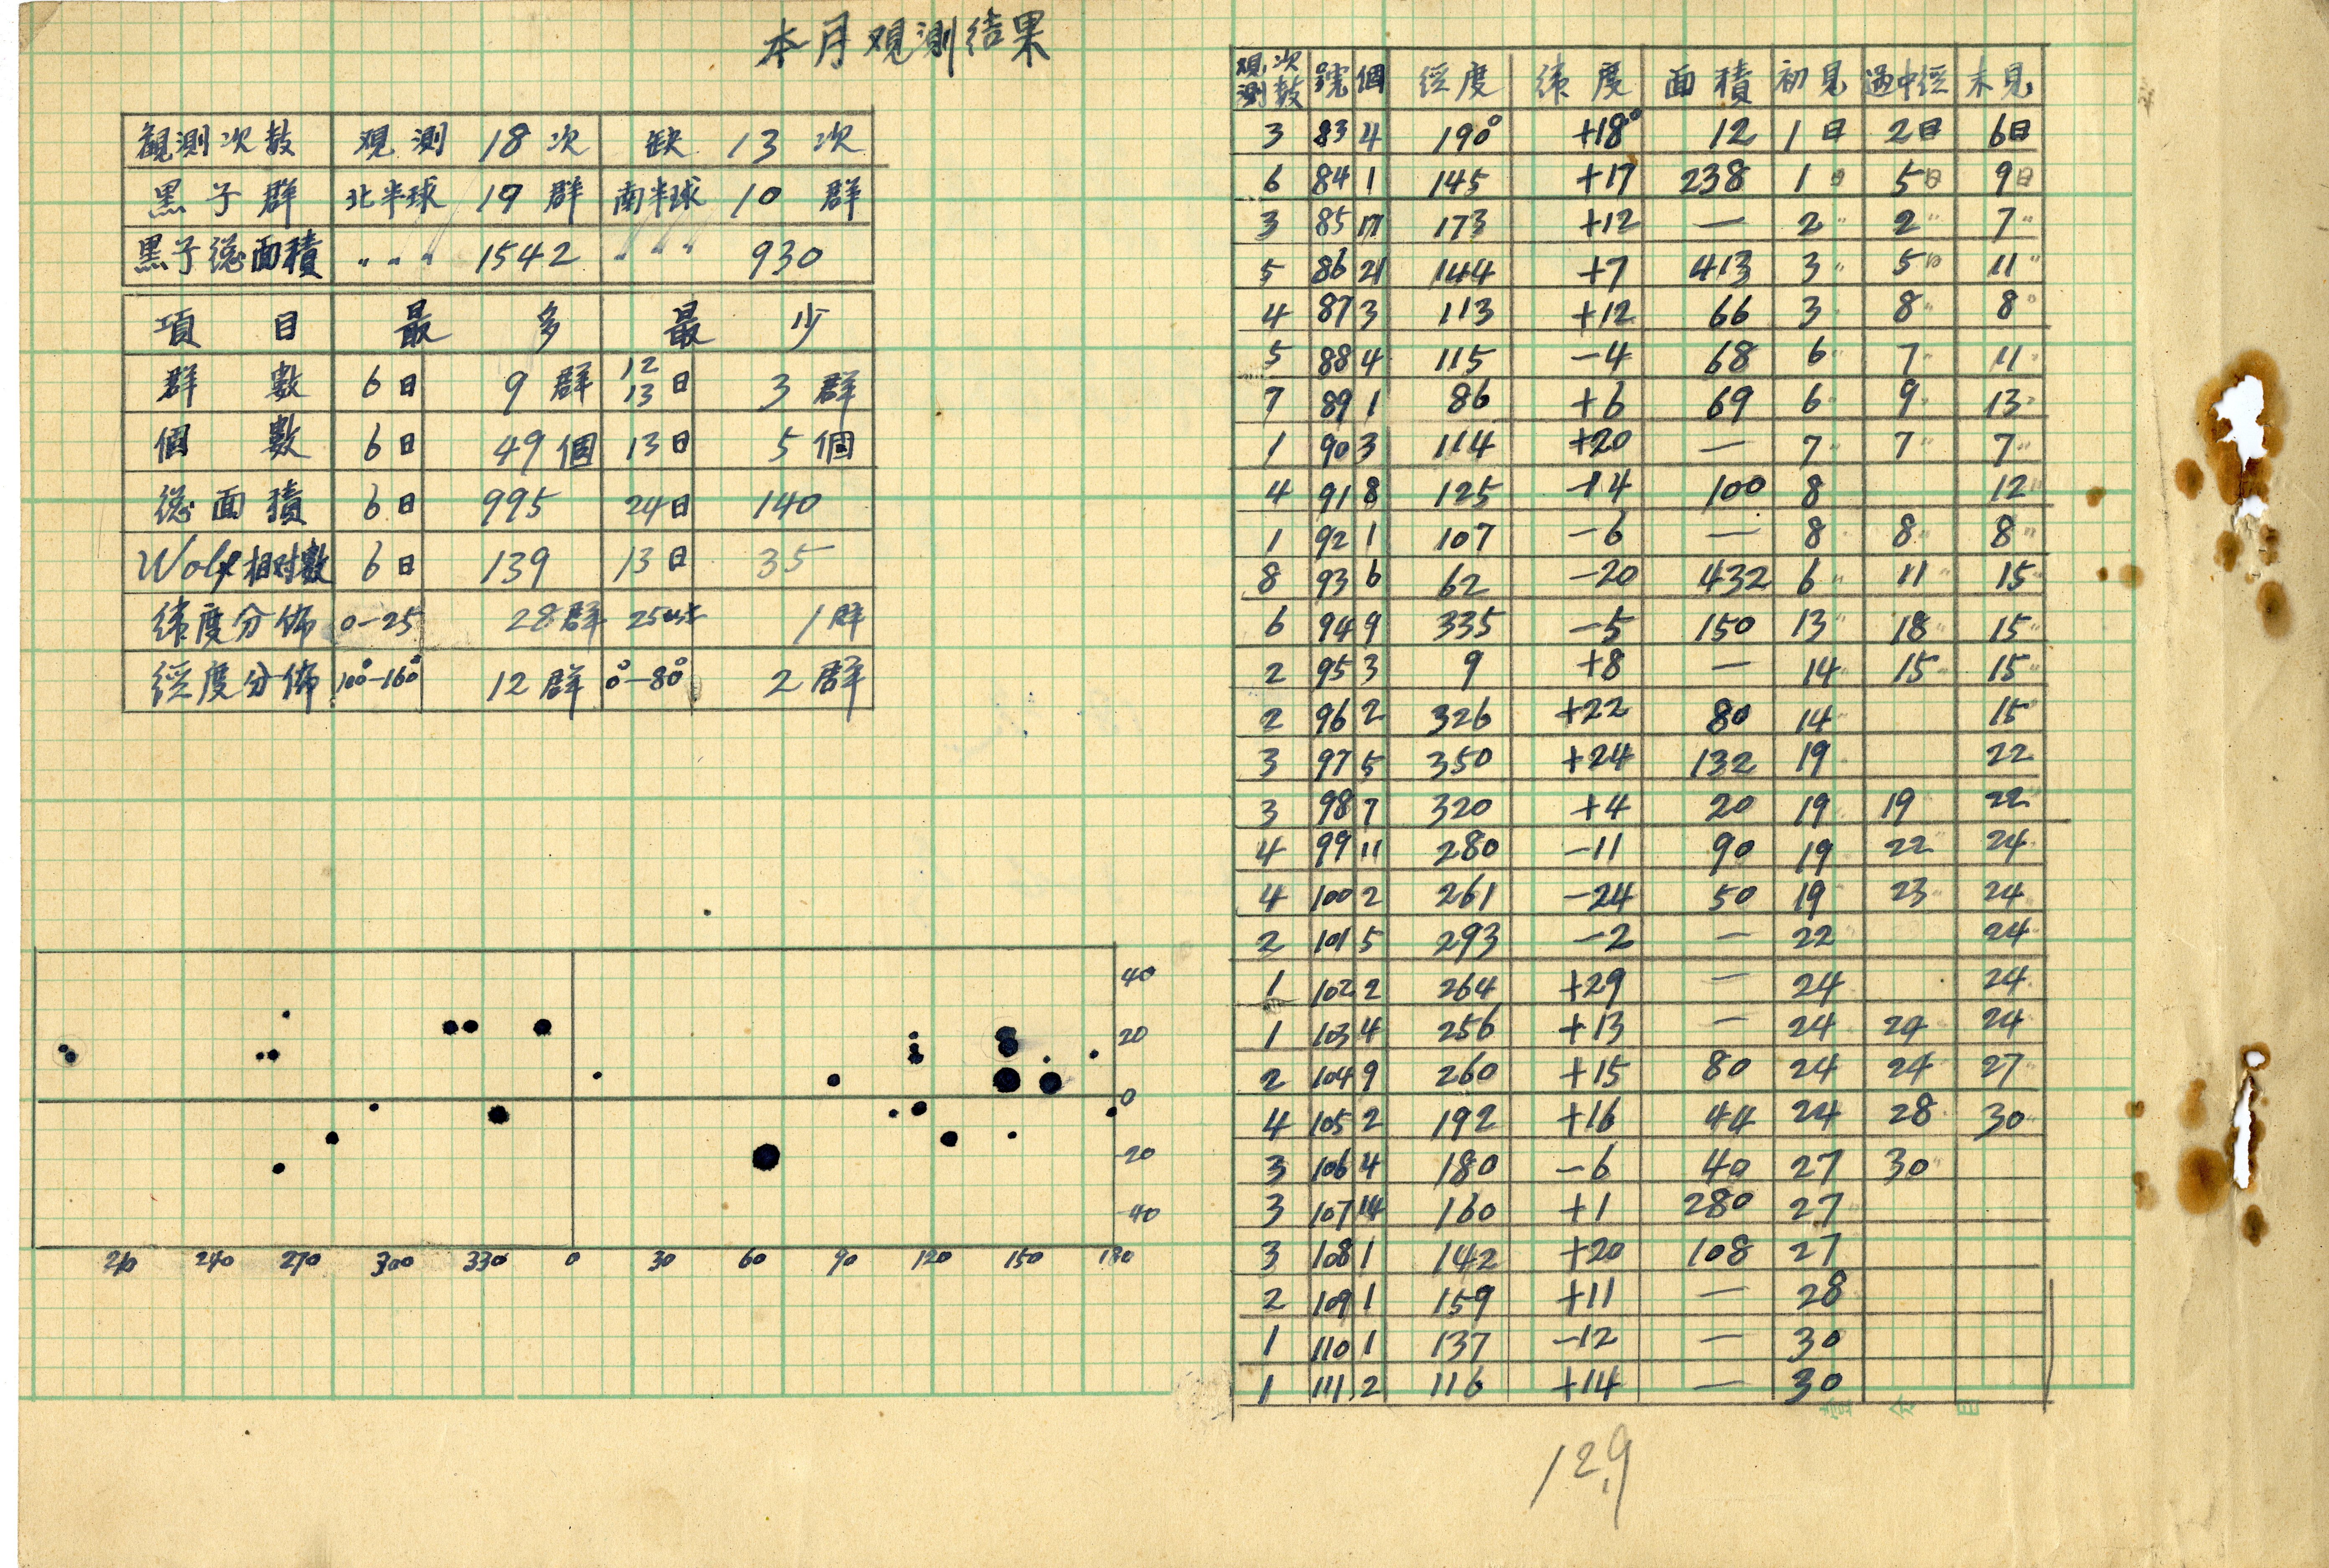 本月观測结果
観測次数 观測 18次 缺 13次
黒子群 北半球 19群 南半球 10群
黒子総面積 〃〃〃 1542 〃〃〃 930
項目 最多 最少
群數 6日 9群 12 13日 3群
個數 6日 49個 13日 5個
総面積 6日 995 24日 140
Wolf相対數 6日 139 13日 35
緯度分佈 0-25 28群 25以上 1群
経度分佈 100°-160° 12群 0°-80° 2群
40
20
0
-20
-40
210 240 270 300 330 0 30 60 90 120 150 180
观測次数 号 個 経度 緯度 面積 初見 過中経 末見
3 83 4 190° +18° 12 1日 2日 6日
6 84 1 145 +17 238 1日 5日 9日
3 85 17 173 +12 — 2〃 2〃 7〃
5 86 21 144 +7 413 3〃 5日 11〃
4 87 3 113 +12 66 3 8〃 8〃
5 88 4 115 -4 68 6〃 7〃 11〃
7 89 1 86 +6 69 6〃 9〃 13〃
1 90 3 114 +20 — 7〃 7〃 7〃
4 91 8 125 -14 100 8 12〃
1 92 1 107 -6 — 8〃 8〃 8〃
8 93 6 62 -20 432 6〃 11〃 15〃
6 94 9 335 -5 150 13〃 18〃 15〃
2 95 3 9 +8 — 14〃 15〃 15〃
2 96 2 326 +22 80 14〃 15〃
3 97 5 350 +24 132 19〃 22〃
3 98 7 320 +4 20 19 19〃 22〃
4 99 11 280 -11 90 19 22〃 24〃
4 100 2 261 -24 50 19 23〃 24〃
2 101 5 293 -2 — 22 24〃
1 102 2 264 +29 — 24 24〃
1 103 4 256 +13 — 24 24〃 24
2 104 9 260 +15 80 24 24〃 27〃
4 105 2 192 +16 44 24 28〃 30〃
3 106 4 180 -6 40 27 30〃
3 107 14 160 +1 280 27
3 108 1 142 +20 108 27
2 109 1 159 +11 — 28
1 110 1 137 -12 — 30
1 111 2 116 +14 — 30